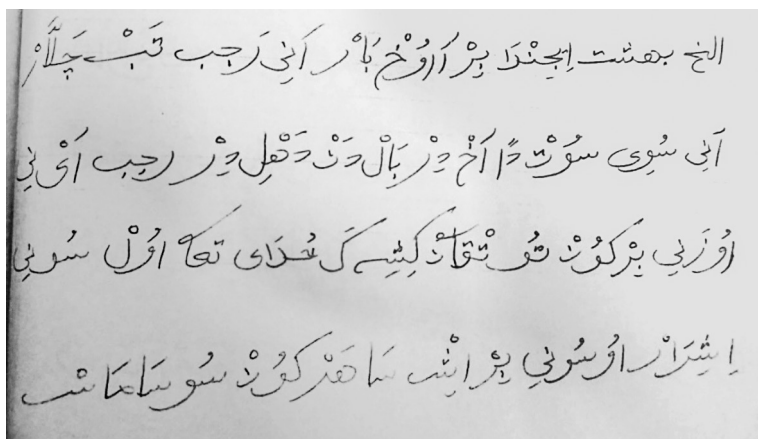 الخ بهشت اِيجِنْدَا بِرْ اَارُوْخْ بَاْر اَنِى رَجب تَبْ چَلَّاْر
اَنِى سُوِى سُوْتْ دَا اَخْ دِرْ بَالْ دَنْ دَهْل دِرْ رجب اَىْ نِى
اوُزَنِي بِرْ كوُنْ تُوتْقَانْ كِشِى كَ خُدَاى تعا اوُلْ سُونِى
اِشِرَاْر اوُ سُونِي بِرْ اِشْ سَا هَرْ كوُنْ سُوسَامَاسْ